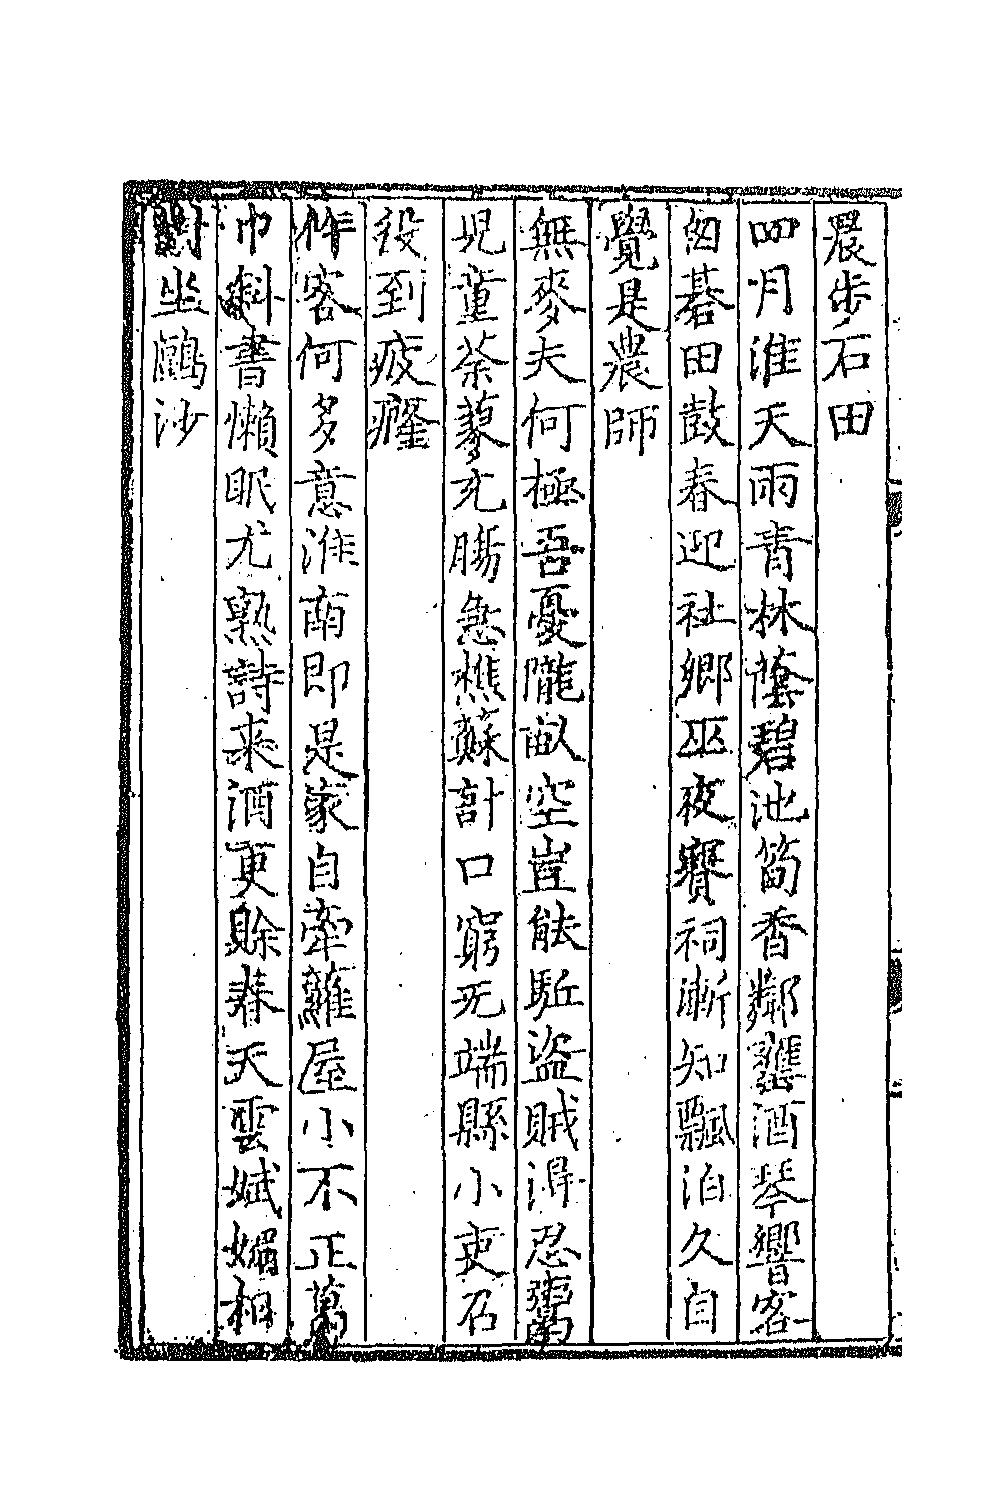 晨步石田
四月淮天雨青林蔭碧池筍香鄰甕酒琴響客
囪碁田鼓春迎社鄉巫夜賽祠漸知飄泊久自
覺是農師
無麥夫何極吾憂隴畝空豈能駈盜賊淂忍鬻
児童荼蓼充腸急樵蘇計口窮无端縣小吏召
役到疲癃
作客何多意淮南即是家自牽蘿屋小不正葛
巾斜書懶眠尤熟詩来酒更賖春天雲斌媚相
對坐鷗沙